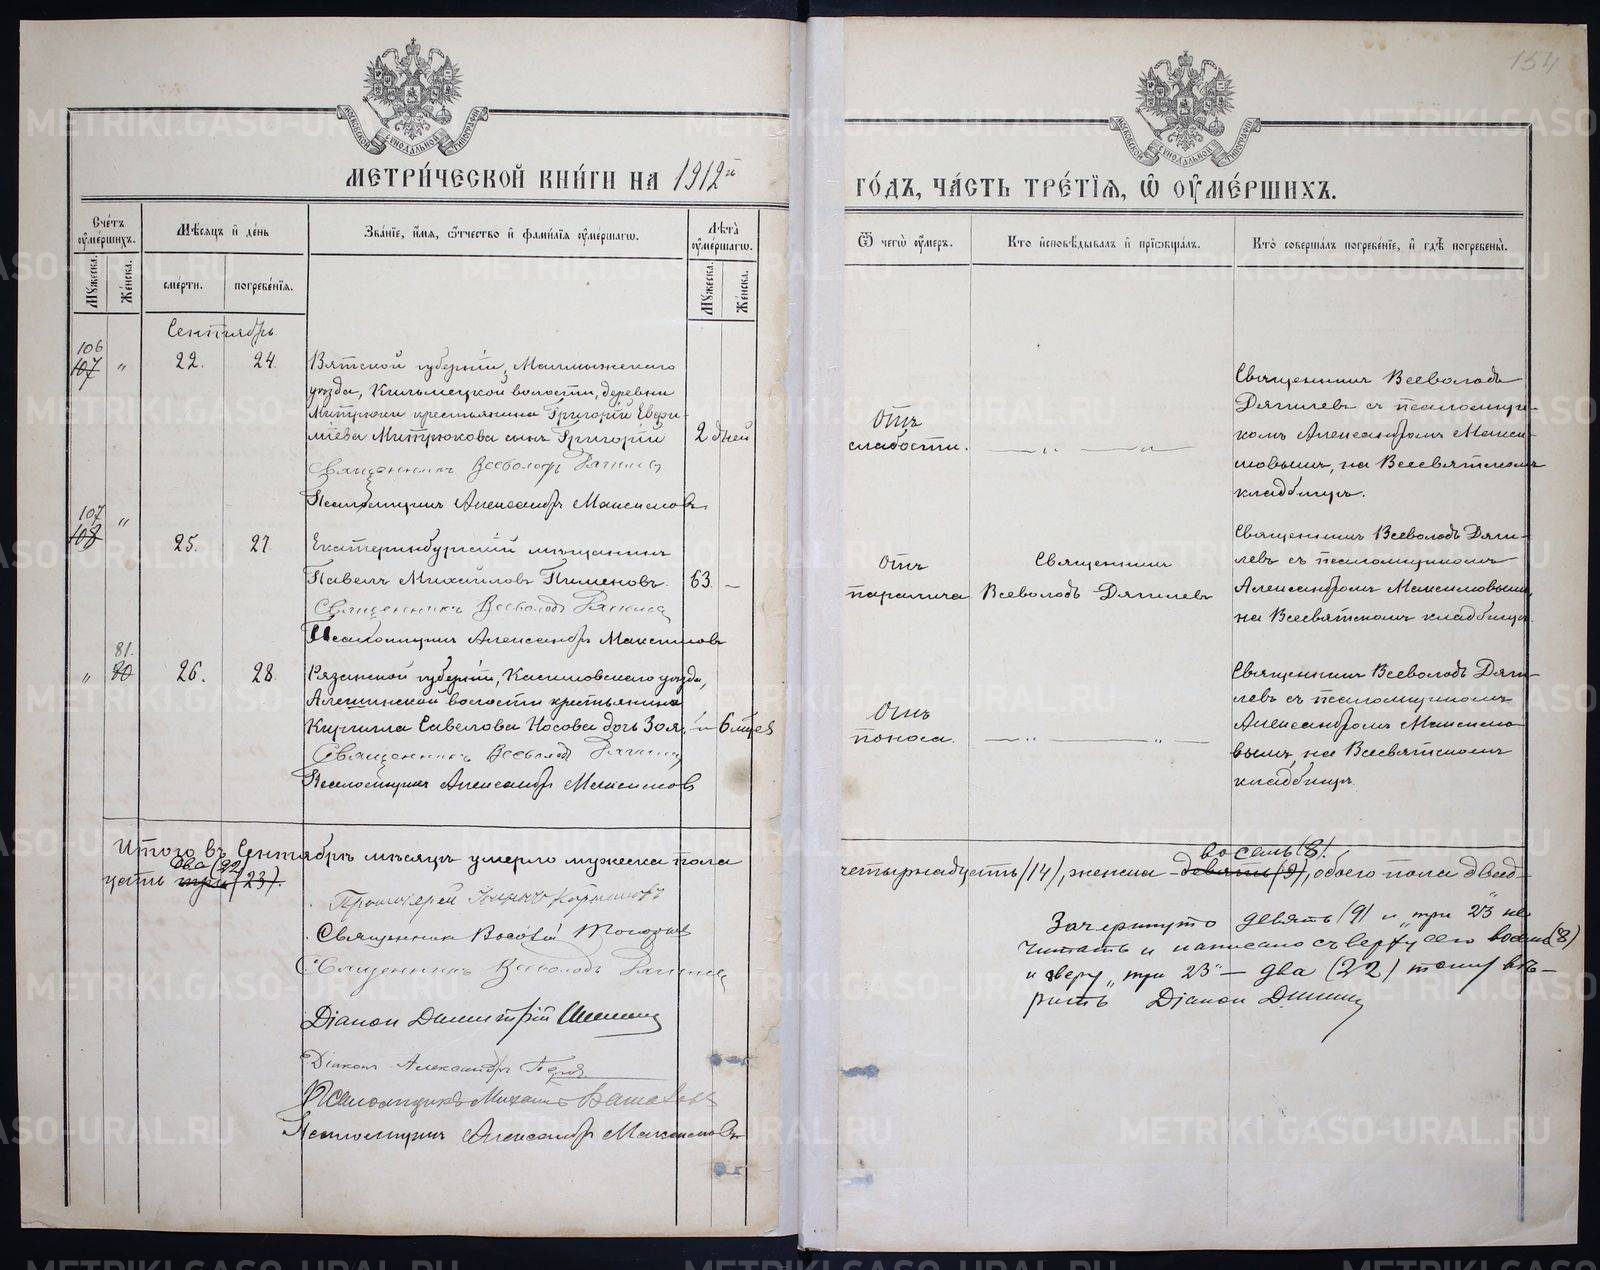 154
МОСКОВСКОЙ СѴНОДАЛЬНОЙ ТИПОГРАФІИ
МОСКОВСКОЙ СѴНОДАЛЬНОЙ ТИПОГРАФІИ
МЕТРИ́ЧЕСКОЙ КНИ́ГИ НА 1912й
ГО́ДЪ, ЧА́СТЬ ТРЕ́ТІѦ, Ѿ ОУМЕ́РШИХЪ.
Сче́тъ оуме́ршихъ.
Мꙋ́жеска.
Же́нска.
Мѣ́сяцъ и де́нь
сме́рти.
погребе́нїя.
Зва́нїе, и́мя, о́тчество и фами́лїя оуме́ршагѡ.
Лѣ́та оуме́ршагѡ.
Мꙋ́жеска.
Же́нска.
Ѿ чегѡ̀ оу́меръ.
Кто̀ исповѣ́дывалъ и прїѡбща́лъ.
Кто̀ соверша́лъ погребе́нїе, и гдѣ̀ погребены̀.
Сентябрь
106
107 " 22. 24.
Вятской губерніи, Малмыжскаго
уѣзда, Кильмезской волости, деревни
Митрюки крестьянина Григорія Евфи-
міева Митрюкова сынъ Григорій 2 дней
Священникъ Всеволодъ Дягилев
Псаломщикъ Александръ Максимовъ
Отъ
слабости.
— " — "
Священникъ Всеволодъ
Дягилевъ съ псаломщи-
комъ Александромъ Макси-
мовымъ, на Всесвятскомъ
кладбищѣ.
107
108 " 25. 27.
Екатеринбургскій мѣщанинъ
Павелъ Михайловъ Пименовъ. 63. —
Священникъ Всеволодъ Дягилев
Псаломщикъ Александръ Максимовъ
Отъ
паралича
Священникъ
Всеволодъ Дягилевъ
Священникъ Всеволодъ Дяги-
левъ съ псаломщикомъ
Александромъ Максимовымъ,
на Всесвятскомъ кладбищѣ
81.
" 80 26. 28.
Рязанской губерніи, Касимовскаго уѣзда,
Алешинской волости крестьянина
Кирилла Савелова Носова дочь Зоя. — 6 мѣсяц
Священникъ Всеволодъ Дягилев
Псаломщикъ Александръ Максимовъ
Отъ
поноса.
— " — "
Священникъ Всеволодъ Дяги-
левъ съ псаломщикомъ
Александромъ Максимо-
вымъ, на Всесвятскомъ
кладбищѣ.
Итого въ Сентябрѣ мѣсяцѣ умерло мужеска пола
четырнадцать (14), женска девять (9), обоего пола двад-
восемь (8).
два (22)
цать три (23).
Протоіерей
Священникъ
Священникъ Всеволодъ Дягилев
Діаконъ Димитрій
Діаконъ Александръ
Псаломщикъ Михаилъ
Псаломщикъ Александръ Максимовъ
Зачеркнуто девять (9) и „три 23" не
читать и написано сверху сего восемь (8)
и сверху „три 23" — два (22) тому вѣ-
рить Діаконъ